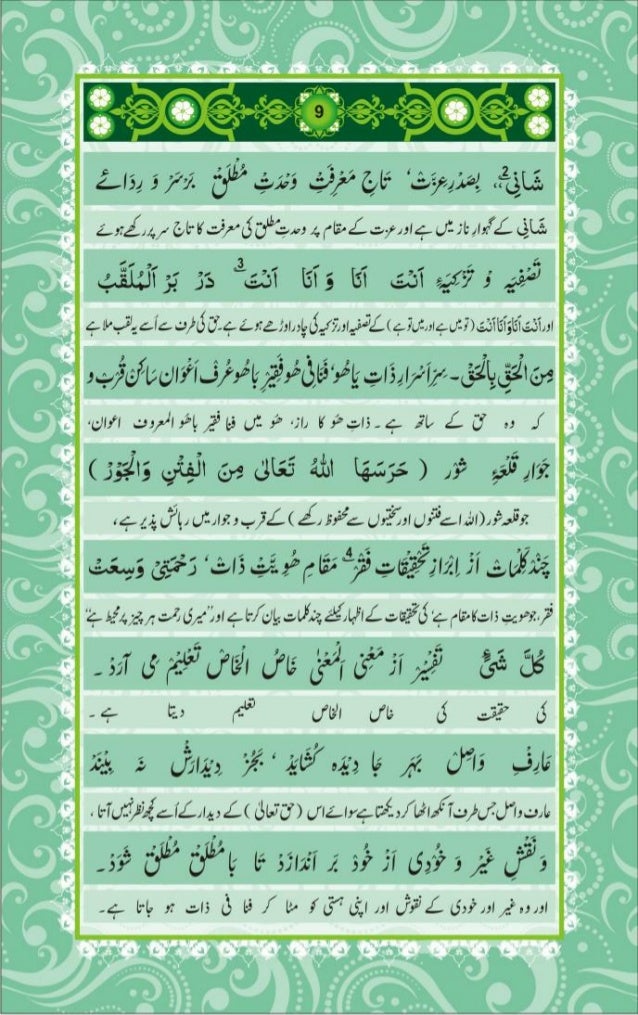 9
شَانِیْ2،، بِصَدْرِ عِزَّتْ، تَاجِ مَعْرِفَتِ وَحْدَتِ مُطْلَقْ بَرْسَرْ وَ رِدَائے
شَانِی کے گہوارِ ناز میں ہے اور عزت کے مقام پر وحدتِ مطلق کی معرفت کا تاج سر پر رکھے ہوئے
تَصْفِیَہ وْ تَزْکِیَۂ اَنْتَ اَنَا وَ اَنَا اَنْتَ3 دَرْ بَرْ اَلْمُلَقَّبُ
اور اَنْتَ اَنَا وَ اَنَا اَنْتَ (تو میں ہے اور میں تو ہے) کے تصفیہ اور تزکیہ کی چادر اوڑھے ہوئے ہے۔ حق کی طرف سے اُسے یہ لقب ملا ہے
مِنَ الْحَقِّ بِالْحَقْ۔ سِرِّ اَسْرَارِ ذَاتِ یَاھُو، فَنَافِیْ ھُو فَقِیْرِ بَاھُو عُرْف اَعْوَان سَاکِنْ قُرْب و
کہ وہ حق کے ساتھ ہے۔ ذاتِ ھُو کا راز، ھُو میں فنا فقیر باھُو المعروف اعوان،
جَوَارِ قَلْعَۂ شُوْر (حَرَسَھَا اللّٰہُ تَعَالٰی مِنَ الْفِتَنِ وَالْجَوْرْ)
جو قلعہ شور (اللہ اسے فتنوں اور سختیوں سے محفوظ رکھے) کے قرب و جوار میں رہائش پذیر ہے،
چَنْد کَلِمَاتْ اَزْ اِبْرَازِ تَحْقِیْقَاتِ فَقْرْ4 مَقَامِ ھُوِیَّتِ ذَاتْ، رَحْمَتِیْ وَسِعَتْ
فقر، جو ھویتِ ذات کا مقام ہے، کی تحقیقات کے اظہار کیلئے چند کلمات بیان کرتا ہے اور ”میری رحمت ہر چیز پر محیط ہے“
کُلَّ شَیْئٍ تَفْسِیْرْ اَزْ مَعْنِی الْمَعْنٰی خَاصُ الْخَاصْ تَعْلِیْمْ مِی آرَدْ۔
کی حقیقت کی خاص الخاص تعلیم دیتا ہے۔
عَارِفِ وَاصِلْ بَہَر جَا دِیْدَہ کُشَایَدْ، بَجُزْ دِیْدَارَشْ نَہ بِیْنَدْ
عارف واصل جس طرف آنکھ اٹھا کر دیکھتا ہے سوائے اس (حق تعالیٰ) کے دیدار کے اُسے کچھ نظر نہیں آتا،
وَ نَقْشِ غَیْر وَ خُوْدِی اَزْ خُوْد بَر اَنْدَازَدْ تَا بَا مُطْلَقْ مُطْلَقْ شَوَدْ۔
اور وہ غیر اور خودی کے نقوش اور اپنی ہستی کو مٹا کر فنا فی ذات ہو جاتا ہے۔